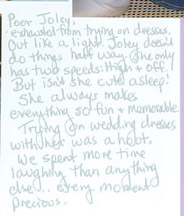 Poor Joley.
exhausted from trying on dresses.
Out like a light. Joley doesn't
do things half way. She only
has two speeds: High & off!
But isn't she cute asleep!
She always makes
everything so fun & memorable.
Trying on wedding dresses
with her was a hoot.
We spent more time
laughing than anything
else... every moment
Precious.